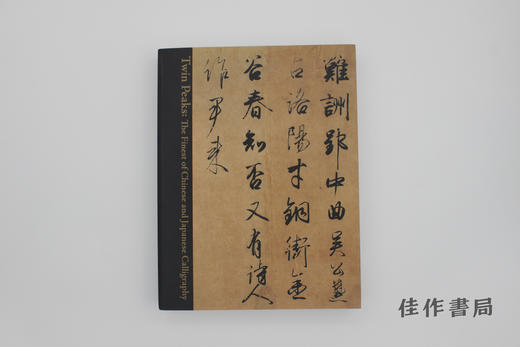 Twin Peaks: The Finest of Chinese and Japanese Calligraphy
難詶郢中曲吴公薦
占洛陽才銅街金
谷春知否又有詩人
作尹来
佳作書局